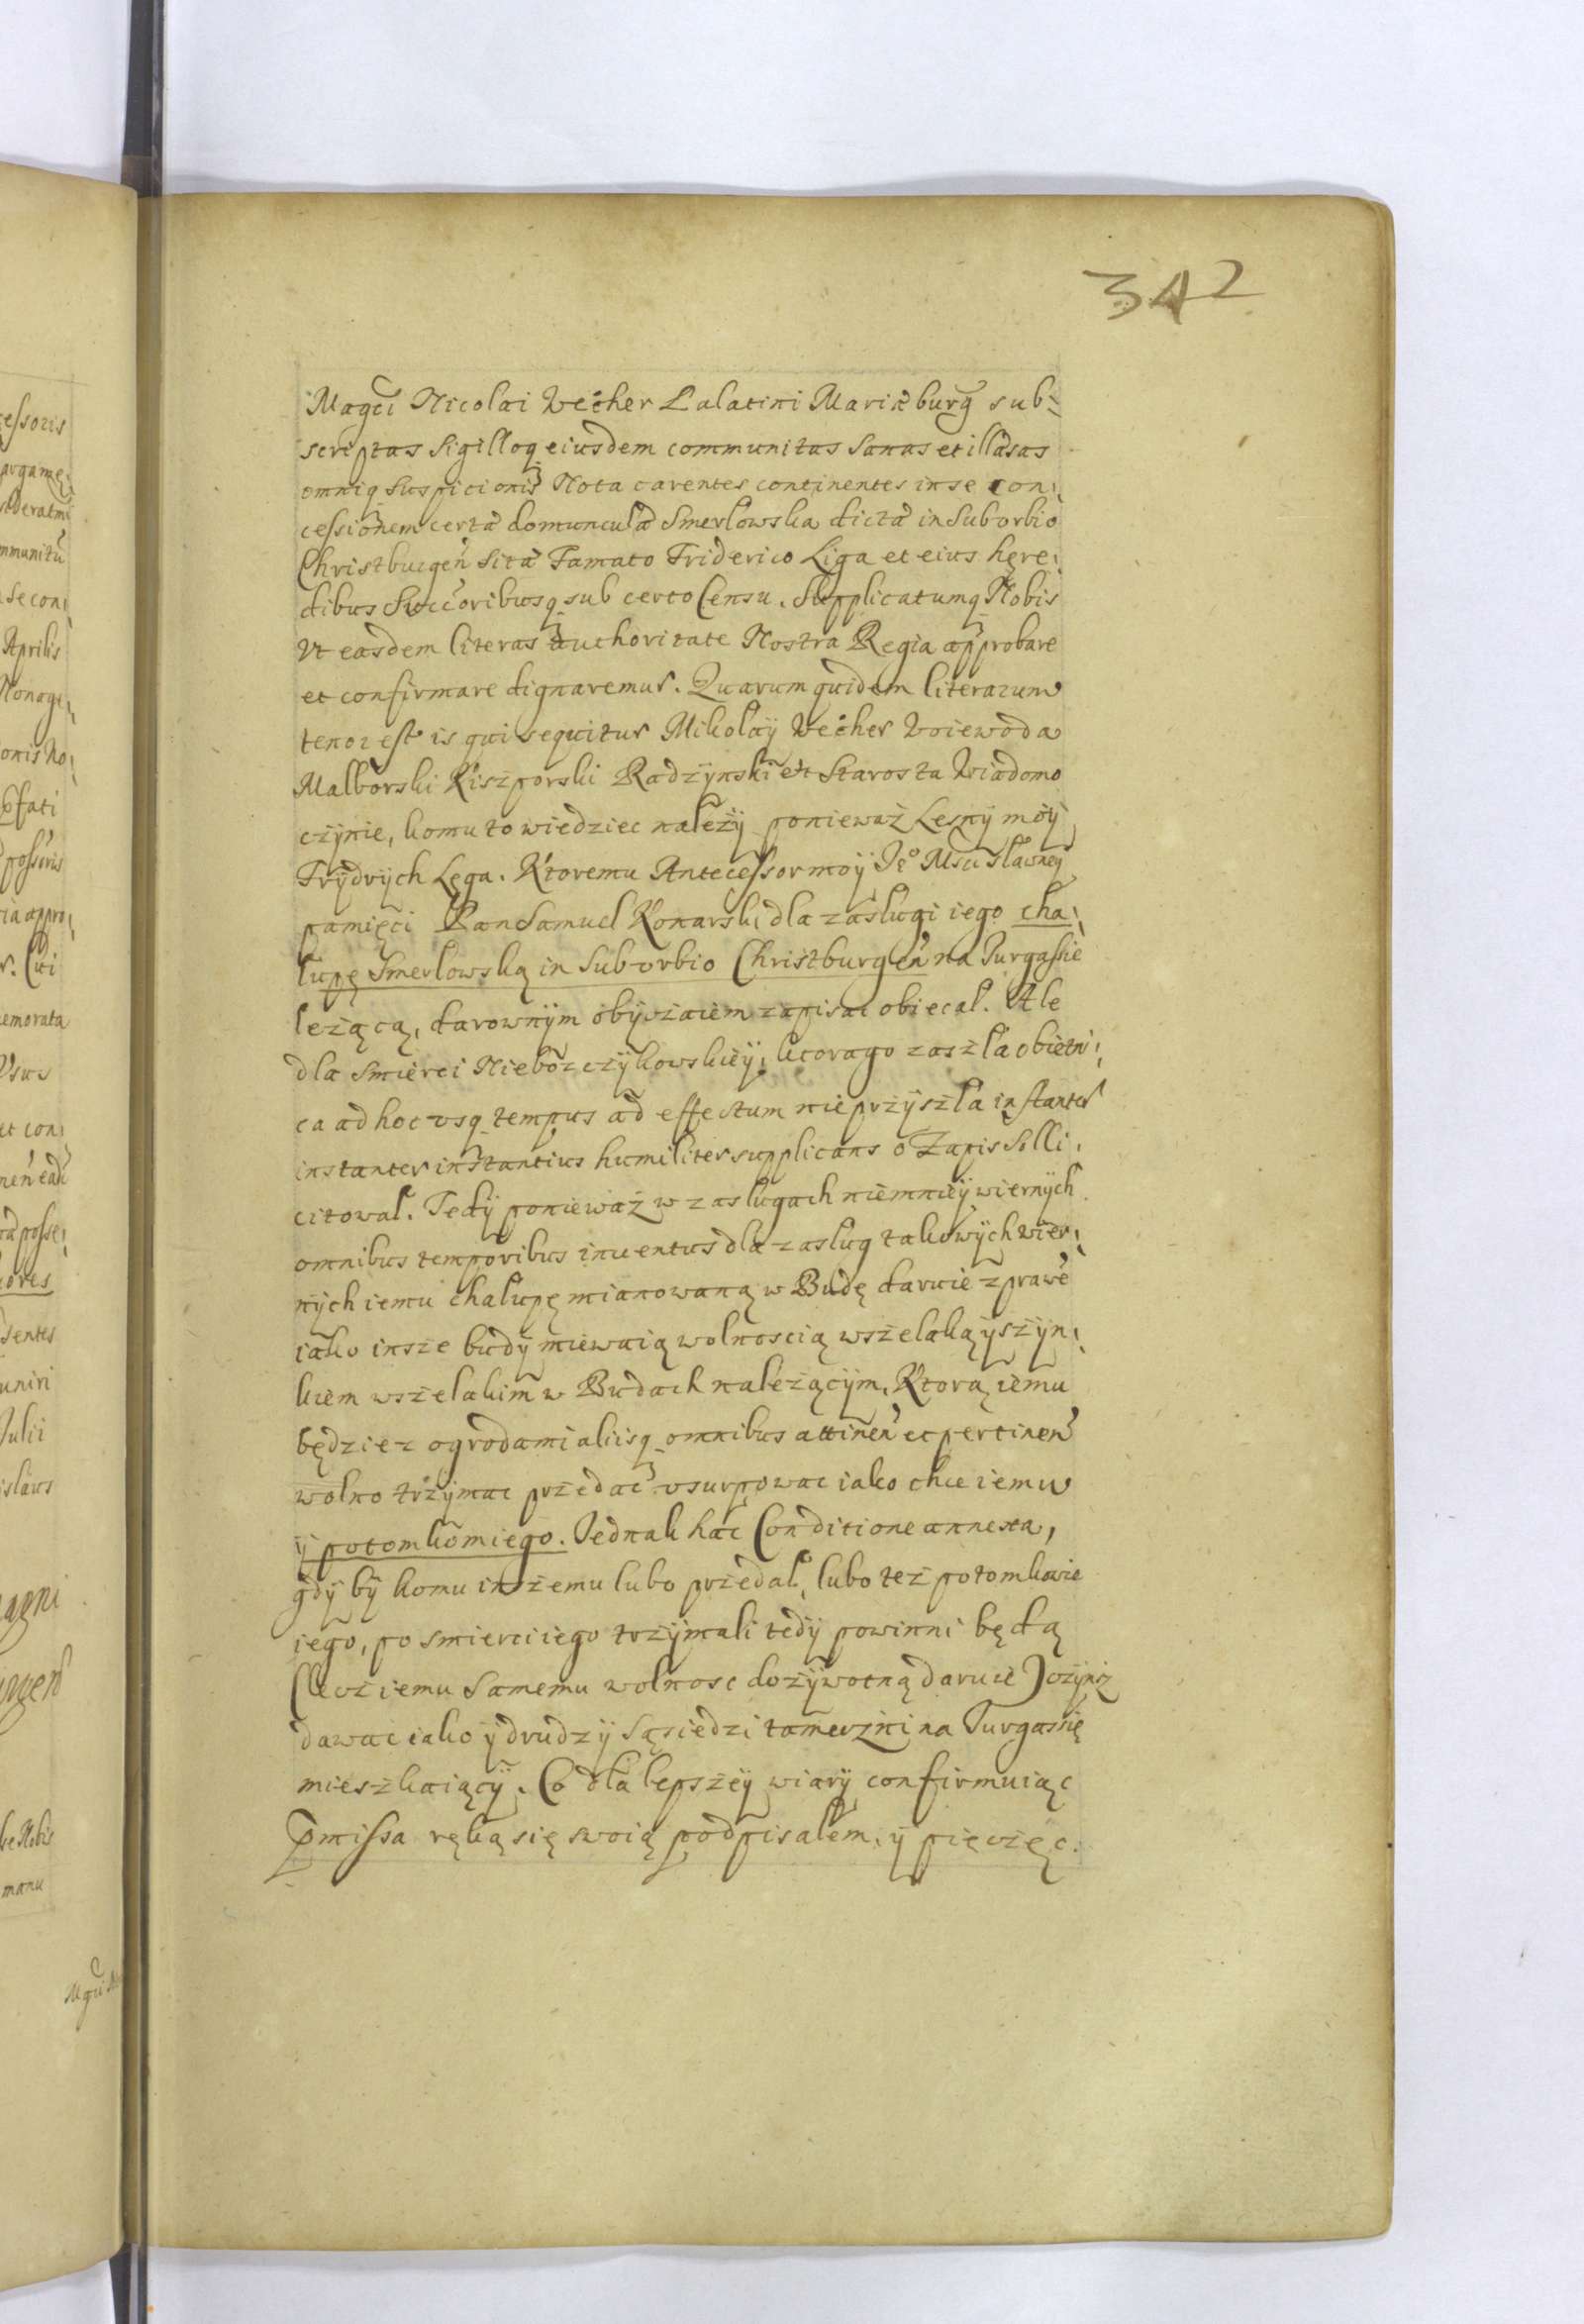 342
Magci Nicolai Wecher Palatini Mariæburg sub-
scriptas Sigilloq eiusdem communitas Sanas et illæsas
omniq suspicionis Nota carentes continentes in se con-
cessionem certæ domunculæ Smerlowska dictæ in Suburbio
Christburgen̄ Sitæ Famato Friderico Liga et eius hęre-
dibus Succoribusq sub certo Censu. Supplicatumq Nobis
Vt easdem literas authoritate Nostra Regia approbare
et confirmare dignaremur. Quarum quidem literarum
tenor est is qui sequitur Mikołaÿ Wecher Woiewoda
Malborski Kiszporski Radzÿnski etc Starosta Wiadomo
czÿnie, komu to wiedziec nalezÿ ponieważ Lesnÿ moÿ
Frÿdrÿch Lęga. Ktoremu Antecessor moÿ Je° Msci Sławneÿ
pamięci Pan Samuel Konarski dla zasługi iego cha-
lupę Smerlowską in Suburbio Christburgen̄ na Purgassie
leżącą, darownÿm obÿczaiem zapisac obiecal. Ale
dla Smierci Nieboszczÿkowskieÿ, ktorago zaszła obietni-
ca ad hoc vsq tempus ad effectum nie przÿszła instanter
instanter instantius humiliter supplicans o Zapis Solli-
citował. Tedÿ ponieważ w zasługach niemnieÿ wiernÿch
omnibus temporibus inuentus dla zasług takowÿch wier-
nÿch iemu chałupę mianowaną w Budę daruie z prawē
iako insze budÿ miewaią wolnoscią wszelaką ÿ szÿn-
kiem wszelakim w Budach należącÿm. Ktorą iemu
będzie z ogrodami aliisq omnibus attinen̄ et pertinen̄
wolno trzÿmac przedac vsurpowac iako chce iemu
ÿ potomkom iego. Jednak hac Conditione annexa,
gdÿ bÿ komu inszemu lubo przedał, lubo też potomkowie
iego, po smierci iego trzÿmali tedÿ powinni będą
(lecz iemu Samemu wolnosc dożÿwotną daruie) czÿnsz
dawac iako ÿ drudzÿ Sąsiedzi tameczni na Purgassię
mieszkaiącÿ. Co dla lepszeÿ wiarÿ confirmuiąc
præmissa ręką się swoią podpisałem, ÿ pieczęc.